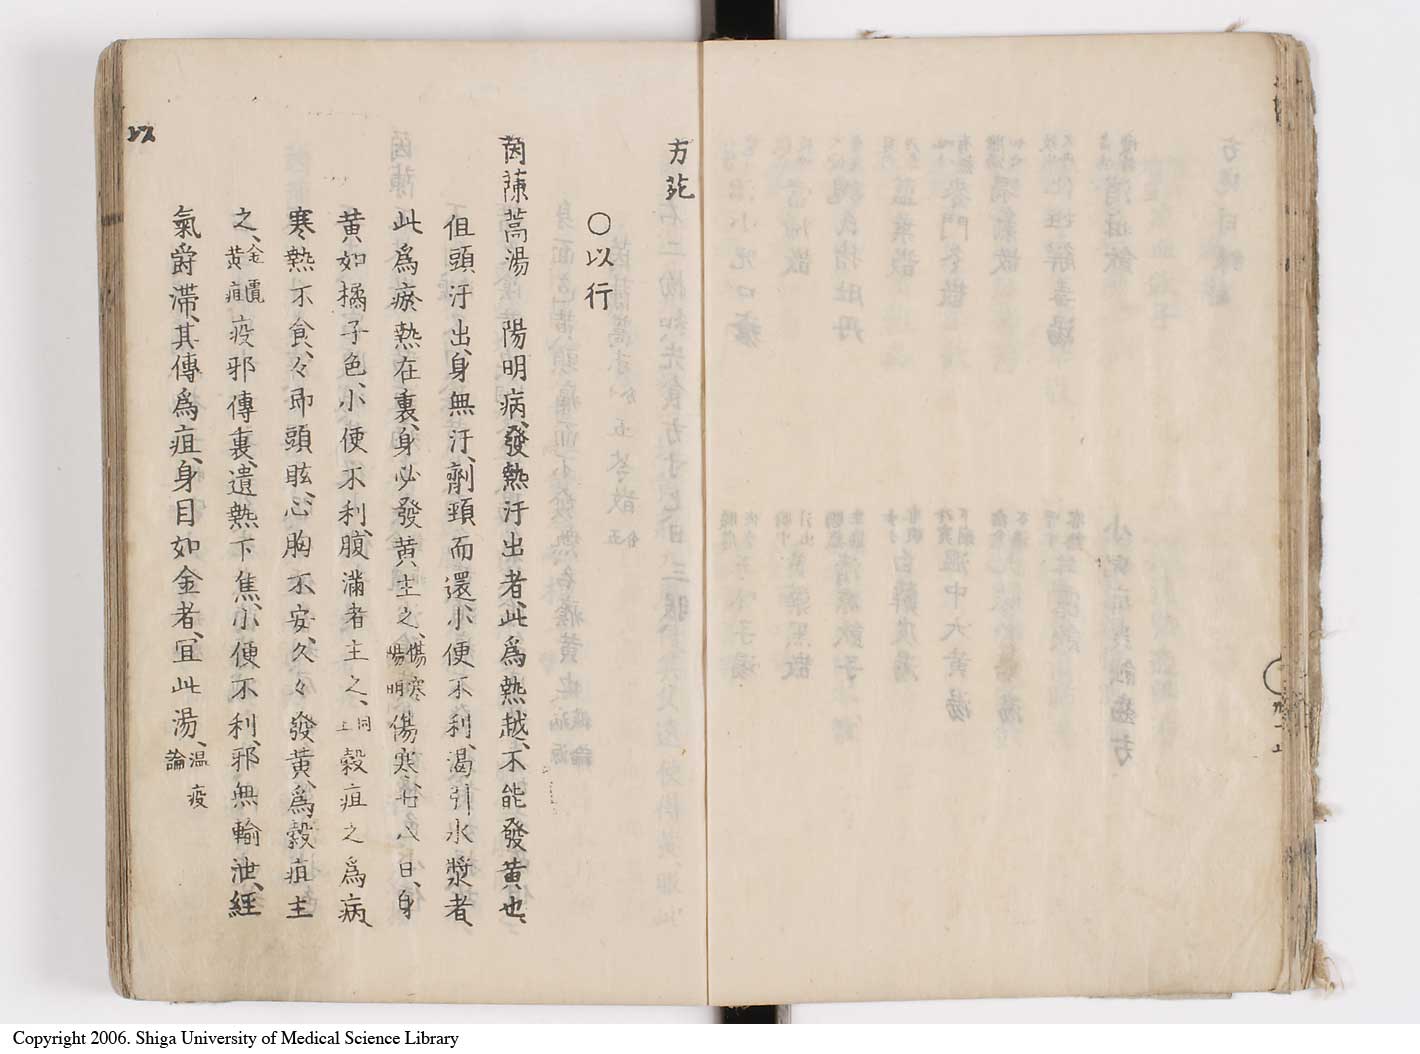 方彀
〇以行
茵蔯蒿湯 陽明病、發熱汗出者、此爲熱越、不能發黄也、
但頭汗出、身無汗、劑頸而還、小便不利、渴引水漿者、
此爲瘀熱在裏、身必發黄主之、傷寒陽明 傷寒七八日、身
黄如橘子色、小便不利、腹滿者主之、同上 穀疸之爲病
寒熱不食、々即頭眩、心胸不安、久々發黄、爲穀疸主
之、金匱黄疸 疫邪傳裏、遺熱下焦、小便不利、邪無輸泄、經
氣欝滯、其傳爲疸、身目如金者、冝此湯、温疫論
以
Copyright 2006. Shiga University of Medical Science Library